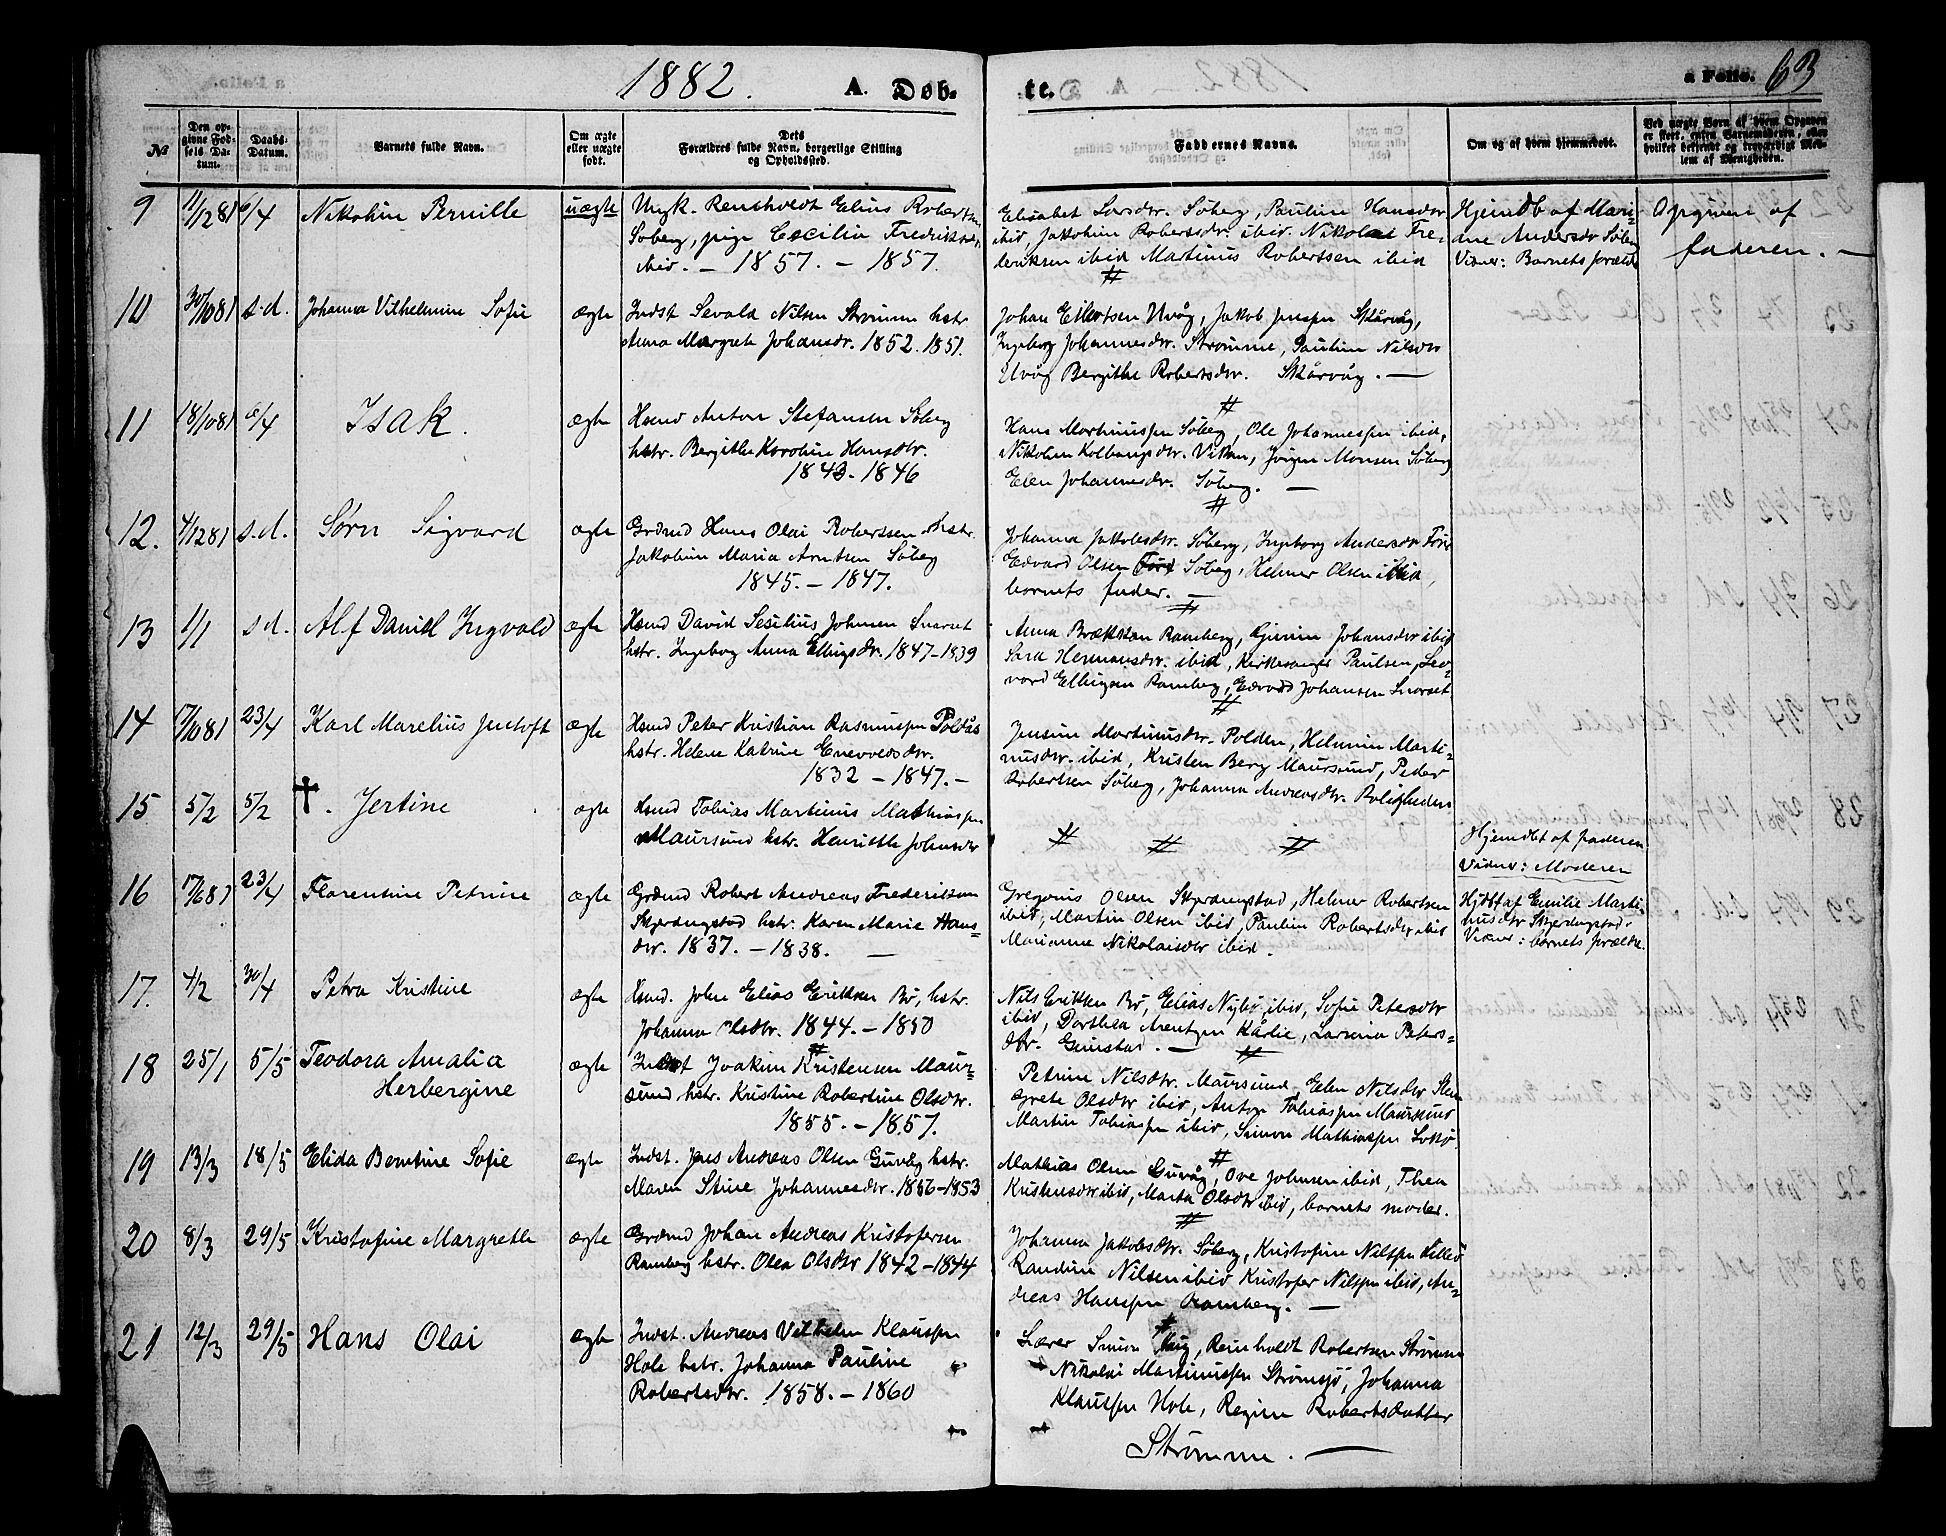 1882. A. Døb- te. a Folio. 63
№ Den opgivne Fødsels Datum. Daabs-Datum. Barnets fulde Navn. Om ægte eller uægte født. Forældres fulde Navn, borgerlige Stilling og Opholdssted. Faddernes Navne. Om og af hvem hjemmedøbt.
9 11/12 81 6/4 Nikoline Pernille uægte Ungk. Renholdt Elias Robertsen Elisabet Larsdtr. Søberg, Pauline Hansdtr Hjemdb af Mari- Opgiven af
Søberg, pige Cecilia Fredriksd. ibid, Jakobine Robertsdr ibid. Nikolai Fre- ane Andersdr Søberg faderen. —
ibid. — 1857. — 1857. deriksen ibid Martinus Robertsen ibid Vidner: Barnets forældre
#
10 30/10 81 s.d. Johanna Vilhelmine Sofie ægte Indst Sevald Nilsen Strømme hstr Johan Eilertsen Uvåg, Jakob Jenssen Skårvåg,
Anna Margrete Johansdr. 1852. 1851. Ingeborg Johannesdr. Strømme, Pauline Nilsdtr
Uvåg Bergithe Robertsdtr. Skårvåg. —
#
11 18/10 81 6/4 Isak. ægte Hsmd Anton Stefansen Søberg Hans Martinussen Søberg, Ole Johannessen ibid,
hstr. Bergithe Karoline Hansdtr. Nikoline Kolbangsdtr. Vikan, Jørgen Monsen Søberg
1843. 1846 Elen Johannesdr. Søberg. —
#
12. 4/12 81 s.d. Sørn Sigvard ægte Grdmd Hans Olai Robertsen hstr. Johanna Jakobsdtr. Søberg, Ingeborg Andersdr
Jakobine Maria Arntsen Søberg Edvard Olsen Søberg, Helmer Olsen ibid,
1845. — 1847. barnets fader. —
#
13 1/1 s.d. Alf Daniel Ingvald ægte Hsmd David Sesilius Johnsen Snarset Anna Brækkan Ramberg, Johansdtr ibid
hstr. Ingeborg Anna Ellingsdr. 1847–1839 Sara Hermansdtr. ibid, Kirkesanger Paulsen,
Ellingsen Ramberg, Edvard Johansen Snarset
#
14 17/10 81 23/4 Karl Marelius Jentoft ægte Hsmd Peter Kristian Rasmussen Poldås Jensine Martinusdtr. Polden, Helmine Marti-
hstr. Helene Katrine Enevoldsdtr. nusdtr. ibid, Kristen Berg Maursund, Peder
1832 — 1847. — Robertsen Søberg, Johanna Andreasdtr. Roligheden
15 5/2 5/2 †. Jertine ægte Hsmd Tobias Martinus Mathiassen # # # Hjemdbt af faderen
Maursund hstr. Henriette Johnsdtr Vidner: Moderen
16 17/6 81 23/4 Florentine Petrine ægte Grdmd Robert Andreas Frederiksen Gregorius Olsen Skjerdingstad, Helmer Robertsen Hjdbt af Emilie Marti-
Skjerdingstad hstr. Karen Marie Hans- ibid, Martin Olsen ibid, Pauline Robertsdtr ibid nusdtr Skjerdingstad.
dtr. 1837. — 1838. — Marianne Nikolaisdtr ibid. Vidner: barnets forældre.
17. 4/2 30/4 Petra Kristine ægte Hsmd. John Elias Eriksen Bø, hstr. Nils Eriksen Bø, Elias Nybø, ibid, Sofie Petersdtr
Johanna Olsdtr. 1844. — 1850 ibid, Dorthea Arentzen Kårlie, Larsina Peters-
dtr. Guvstad. — #
18 25/1 5/5 Teodora Amalia ægte Indst Joakim Kristensen Maur- Petrine Nilsdtr. Maursund, Elen Nilsdtr
Herbergine sund, hstr. Kristine Robertine Olsdtr. Grete Olsdtr ibid, Anton Tobiassen Maursund
1855. — 1857. Martin Tobiassen ibid, Simon Mathiassen
#
19 13/3 18/5 Elida Berntine Sofie ægte Indst. Jens Andreas Olsen Guvåg hstr. Mathias Olsen Guvåg, Ove Johnsen ibid, Thea
Maren Stine Johannesdtr. 1856–1853 Kristensdtr ibid, Marta Olsdtr ibid, barnets moder.
#
20 8/3 29/5 Kristofine Margrethe ægte Grdmd Johan Andreas Kristofersen Johanna Jakobsdtr. Søberg, Kristofine Nilssen
Ramberg hstr. Olea Olsdtr 1842–1844 Randine Nilsen ibid Kristofer Nilssen ibid, An-
dreas Hanssen Ramberg. —
#
21 12/3 29/5 Hans Olai ægte Indst. Andreas Vilhelm Klaussen Lærer Simon , Reinholdt Robertsen Strømme
Hole hstr. Johanna Pauline Nikolai Martinussen Strømsjø, Johanna
Robertsdtr. 1858. — 1860 Klaussen Hole, Regine Robertsdatter
Strømme. —